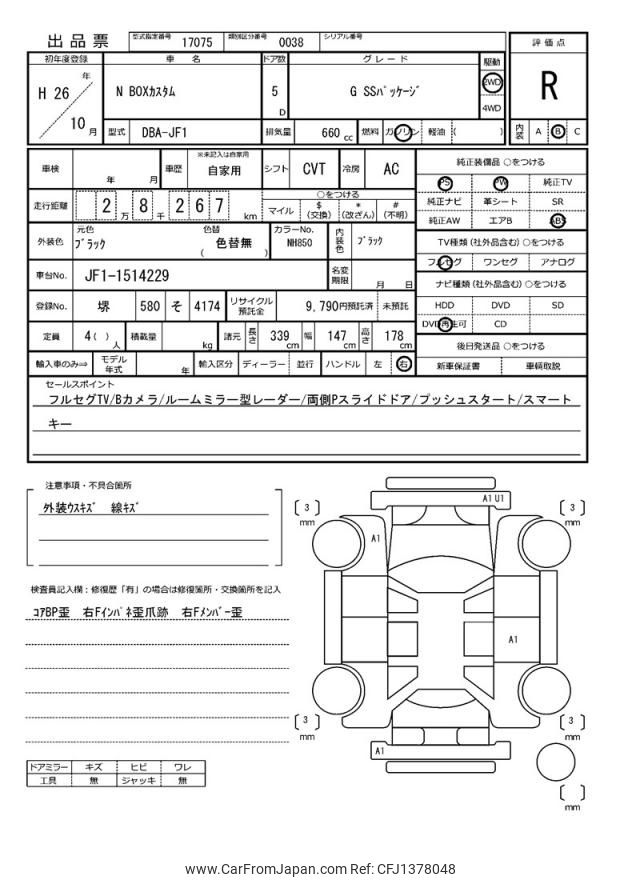 出品票 型式指定番号 17075 類別区分番号 0038 シリアル番号
評価点
R
内装 A B C
初年度登録 車名 ドア数 グレード 駆動
H 26 年 10 月 N BOXカスタム 5 D G SSパッケージ 2WD 4WD
型式 DBA-JF1 排気量 660 cc 燃料 ガソリン 軽油 ( )
車検 年 月 車歴 ※未記入は自家用 自家用 シフト CVT 冷房 AC
走行距離 2 万 8 千 2 6 7 km ○をつける マイル $(交換) *(改ざん) #(不明)
外装色 元色 ブラック 色替 色替無 ( ) カラーNo. NH850 内装色 ブラック
車台No. JF1-1514229 名変期限 月 日
登録No. 堺 580 そ 4174 リサイクル預託金 9,790円預託済 未預託
定員 4 ( ) 人 積載量 kg 諸元 長さ 339 cm 幅 147 cm 高さ 178 cm
輸入車のみ⇒ モデル年式 年 輸入区分 ディーラー 並行 ハンドル 左 右
純正装備品 ○をつける
PS PW 純正TV
純正ナビ 革シート SR
純正AW エアB ABS
TV種類 (社外品含む) ○をつける
フルセグ ワンセグ アナログ
ナビ種類 (社外品含む) ○をつける
HDD DVD SD
DVD再生可 CD
後日発送品 ○をつける
新車保証書 車輌取説
セールスポイント
フルセグTV/Bカメラ/ルームミラー型レーダー/両側Pスライドドア/プッシュスタート/スマート
キー
注意事項・不具合箇所
外装ウスキズ 線キズ
検査員記入欄：修復歴「有」の場合は修復箇所・交換箇所を記入
コアBP歪 右Fインパネ歪爪跡 右Fメンバー歪
ドアミラー キズ ヒビ ワレ
工具 無 ジャッキ 無
A1 U1
3 mm
3 mm
A1
A1
3 mm
3 mm
A1
mm
www.CarFromJapan.com Ref: CFJ1378048